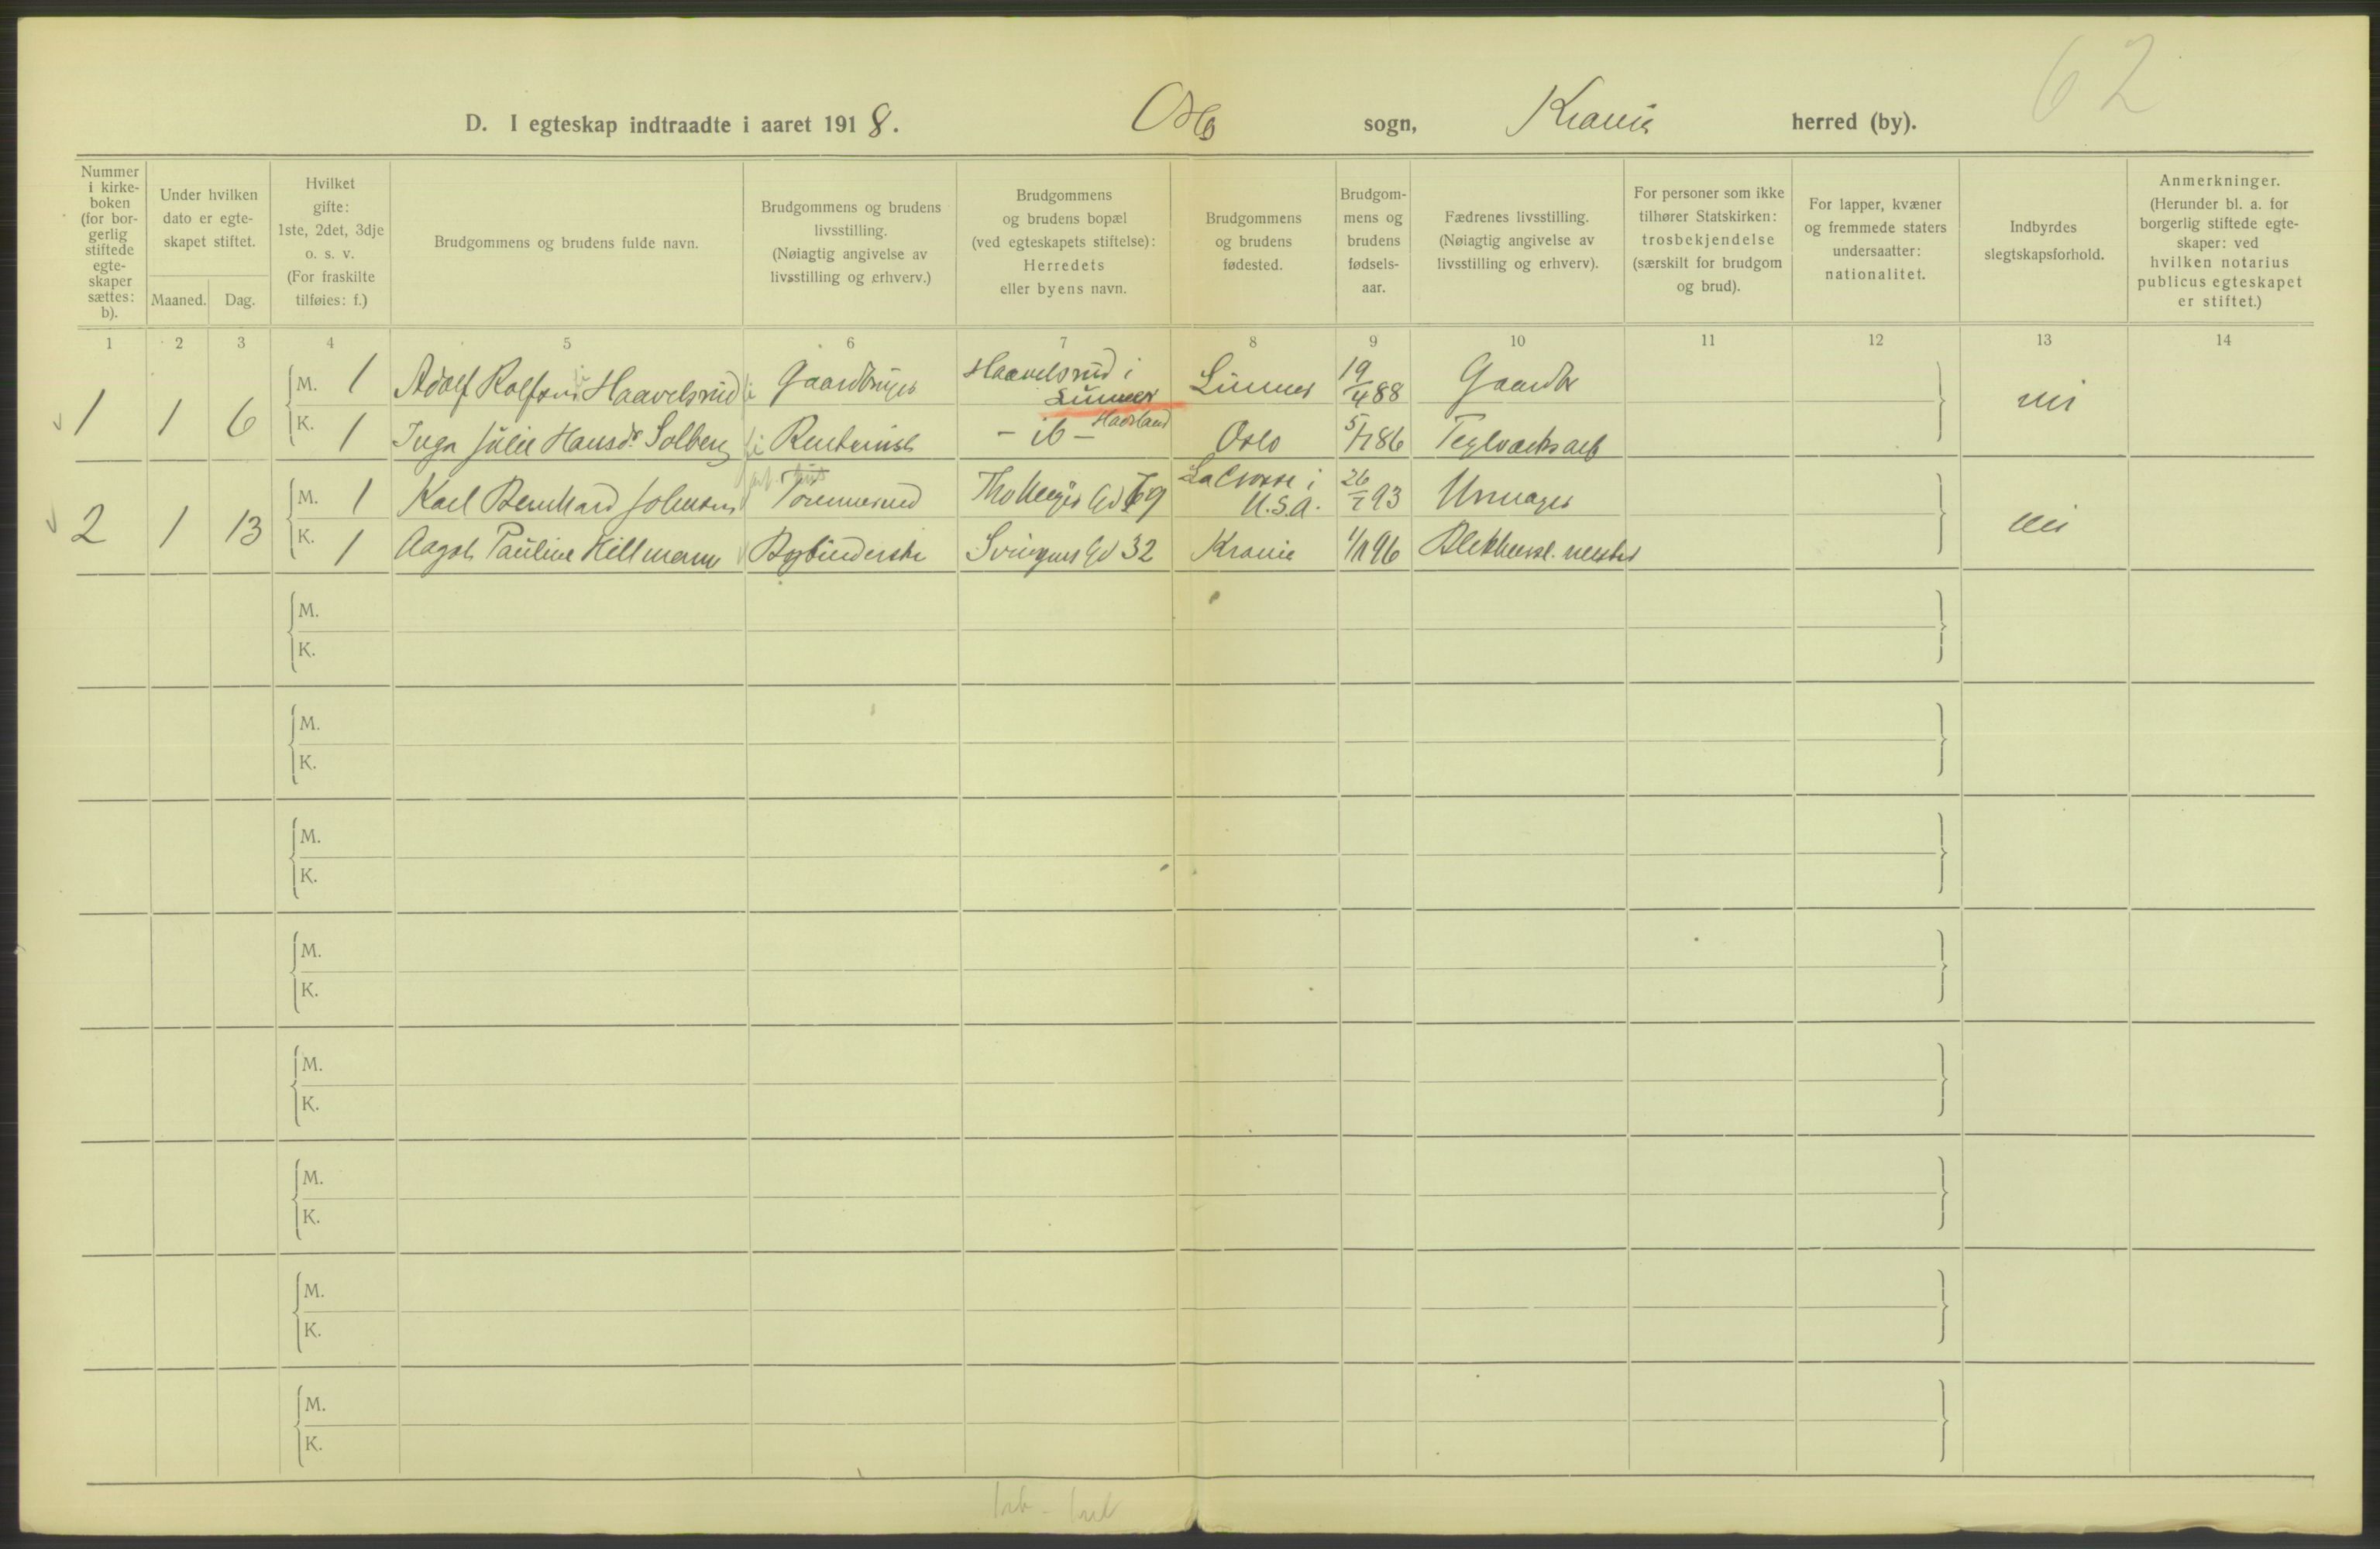 62
D. I egteskap indtraadte i aaret 1918. Oslo sogn, Krania herred (by).
Nummer i kirke-boken (for bor-gerlig stiftede egte-skaper sættes: b).
Under hvilken dato er egte-skapet stiftet.
Maaned. Dag.
Hvilket gifte: 1ste, 2det, 3dje o. s. v. (For fraskilte tilføies: f.)
Brudgommens og brudens fulde navn.
Brudgommens og brudens livsstilling. (Nøiagtig angivelse av livsstilling og erhverv.)
Brudgommens og brudens bopæl (ved egteskapets stiftelse): Herredets eller byens navn.
Brudgommens og brudens fødested.
Brudgom-mens og brudens fødsels-aar.
Fædrenes livsstilling. (Nøiagtig angivelse av livsstilling og erhverv).
For personer som ikke tilhører Statskirken: trosbekjendelse (særskilt for brudgom og brud).
For lapper, kvæner og fremmede staters undersaatter: nationalitet.
Indbyrdes slegtskapsforhold.
Anmerkninger. (Herunder bl. a. for borgerlig stiftede egte-skaper: ved hvilken notarius publicus egteskapet er stiftet.)
1 2 3 4 5 6 7 8 9 10 11 12 13 14
1 1 6 M. 1 Adolf Rolfsen Haavelsrud Gaardbruger Haavelsrud i Lunner Lunner 19/4 88 Gaardbr nei
K. 1 Inga Julie Hansdr Solberg - ib - Hadeland Oslo 5/7 86 Teglværksarb
2 1 13 M. 1 Karl Bernhard Johnsen Thv Meyers Gd 69 La Crosse i U.S.A. 26/7 93 Urmager nei
K. 1 Aagot Pauline Hillmann Bogbinderske Svinguns Gd 32 Krania 1/11 96 Blikkensl. mester
M.
K.
M.
K.
M.
K.
M.
K.
M.
K.
M.
K.
M.
K.
M.
K.